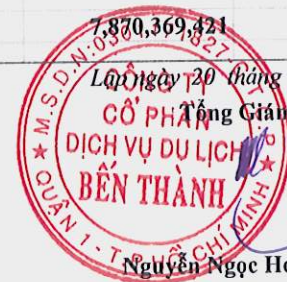 7,870,369,421
Lập ngày 20 tháng
Tổng Giám
M.S.D.N:030
827
CÔNG TY
CỔ PHẦN
DỊCH VỤ DU LỊCH
BẾN THÀNH
QUẬN 1 - T.P HỒ CHÍ MINH
Nguyễn Ngọc